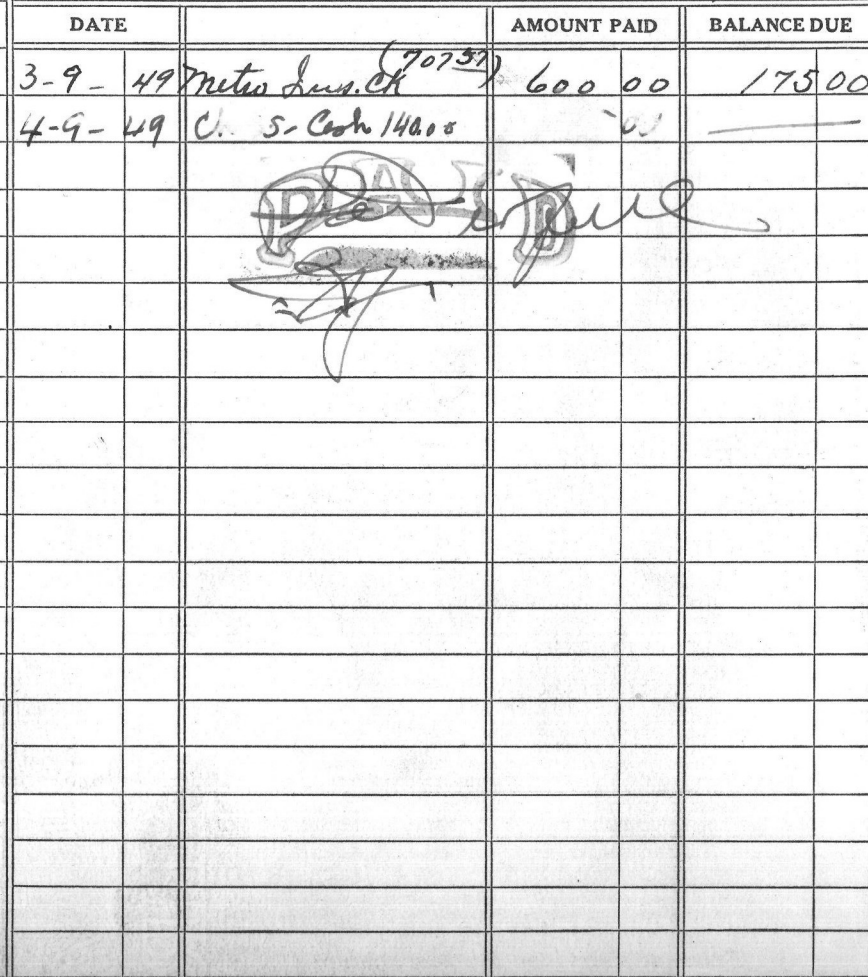 DATE AMOUNT PAID BALANCE DUE
3-9-49 Metro Ins. Ck (70757) 600 00 175 00
4-9-49 C. S- Cash 140.00 00 —
PAID